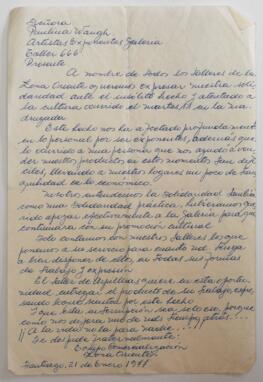 Señora
Paulina Waugh
Artistas Exponentes Galería
Taller 666
Presente
A nombre de todos los Talleres de la
Zona Oriente, queremos expresar nuestra soli-
daridad ante el insólito hecho y atentado a
la cultura ocurrido el martes 13 en la ma-
drugada.
Este hecho nos ha afectado profundamente
en lo personal por sus exponentes, además que
lo ocurrido a una persona que nos ayudó a ven-
der nuestros productos en estos momentos tan difi-
ciles, llevando a nuestros hogares un poco de tran
quilidad en lo económico.
Nosotros entendemos la solidaridad también
como una solidaridad práctica, hubiéramos que-
rido apoyar efectivamente a la Galería para que
continuara con su promoción cultural.
Solo contamos con nuestros Talleres los que
ponemos a su servicio para cuando Ud. tenga
a bien disponer de ellos, en todas sus formas
de trabajo y expresión
El taller de Arpilleras quiere en esta oportu-
nidad, entregar el producto de su trabajo, expre-
sando su sentir por este hecho
Y que esta no sea solo eso, porque
como nos dejara uno de sus
¡¡A la vida no la para nadie...!!
Se despide fraternalmente:
Equipo Comercialización
Zona Oriente
Santiago, 21 de Enero 1977